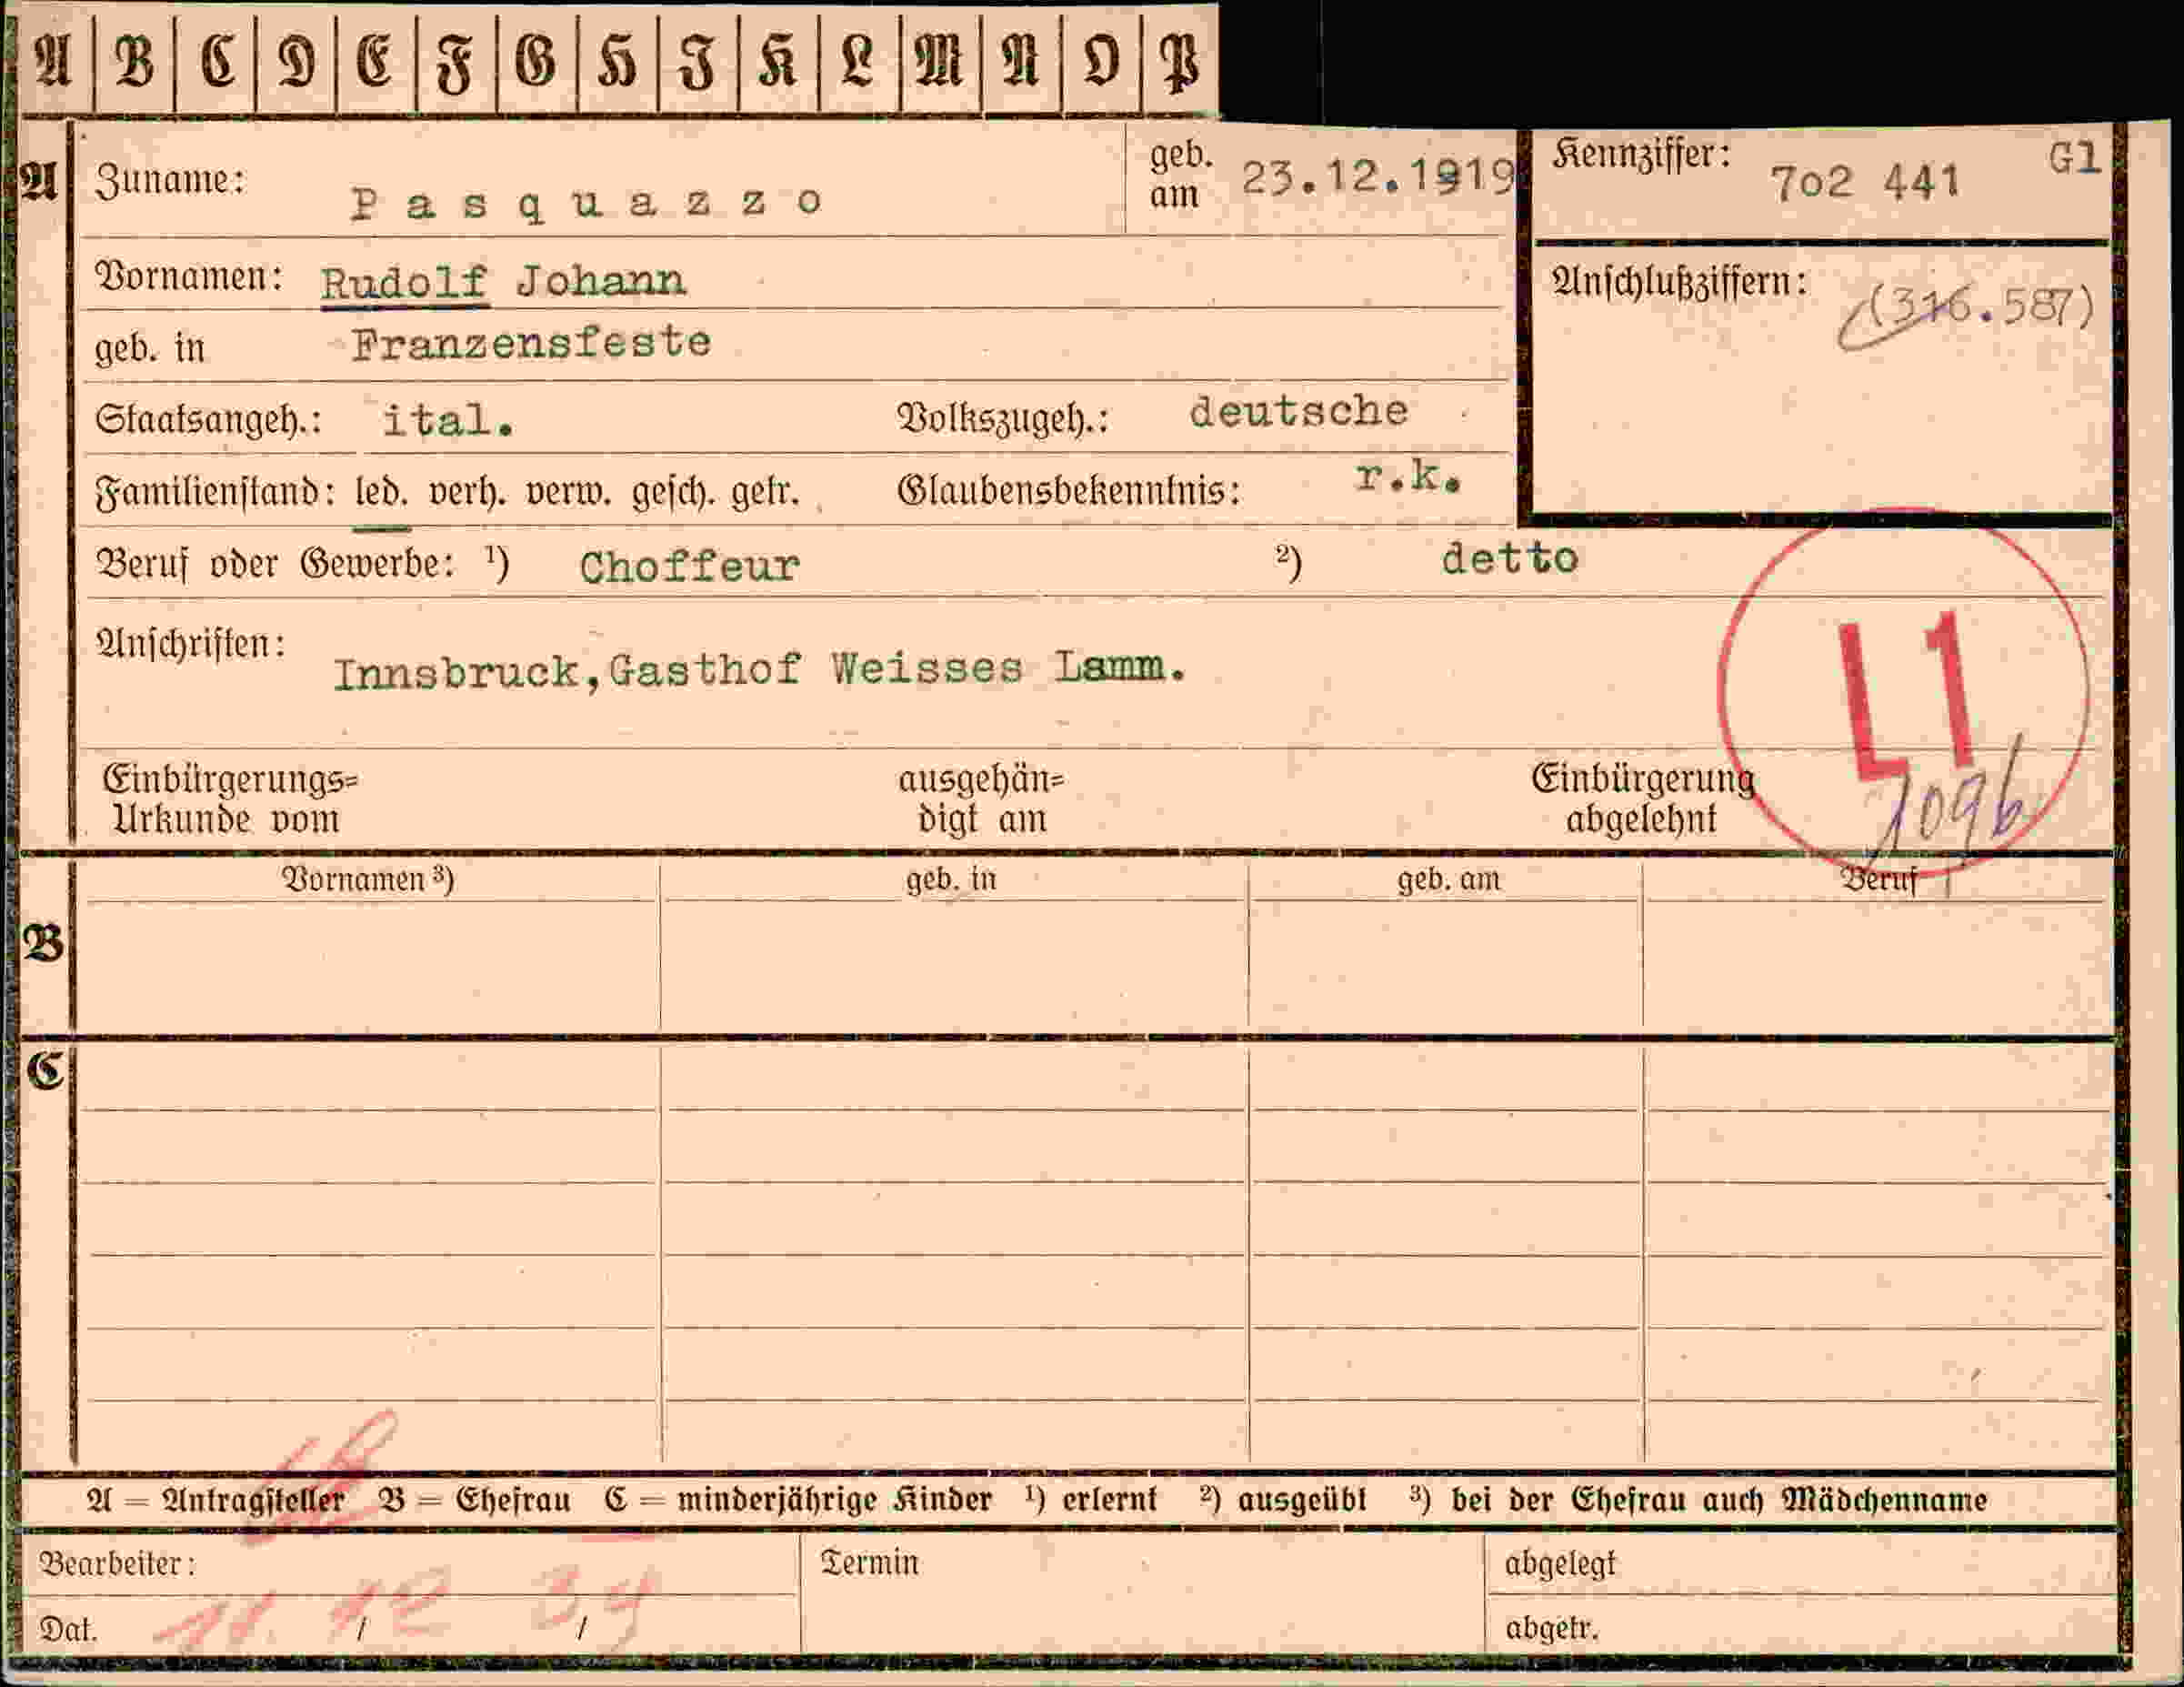 A B C D E F G H I K L M N O P
A Zuname: Pasquazzo geb. am 23.12.1919 Kennziffer: 702 441 G1
Vornamen: Rudolf Johann Anschlußziffern: (316.587)
geb. in Franzensfeste
Staatsangeh.: ital. Volkszugeh.: deutsche
Familienstand: led. verh. verw. gesch. getr. Glaubensbekenntnis: r.k.
Beruf oder Gewerbe: ¹) Choffeur ²) detto
Anschriften: Innsbruck,Gasthof Weisses Lamm.
L1
Einbürgerungs= ausgehän= Einbürgerung
Urkunde vom digt am abgelehnt 1096
Vornamen ³) geb. in geb. am Beruf
B
C
A = Antragsteller B = Ehefrau C = minderjährige Kinder ¹) erlernt ²) ausgeübt ³) bei der Ehefrau auch Mädchenname
Bearbeiter: Termin abgelegt
Dat. 11. / 12 / 39 abgetr.